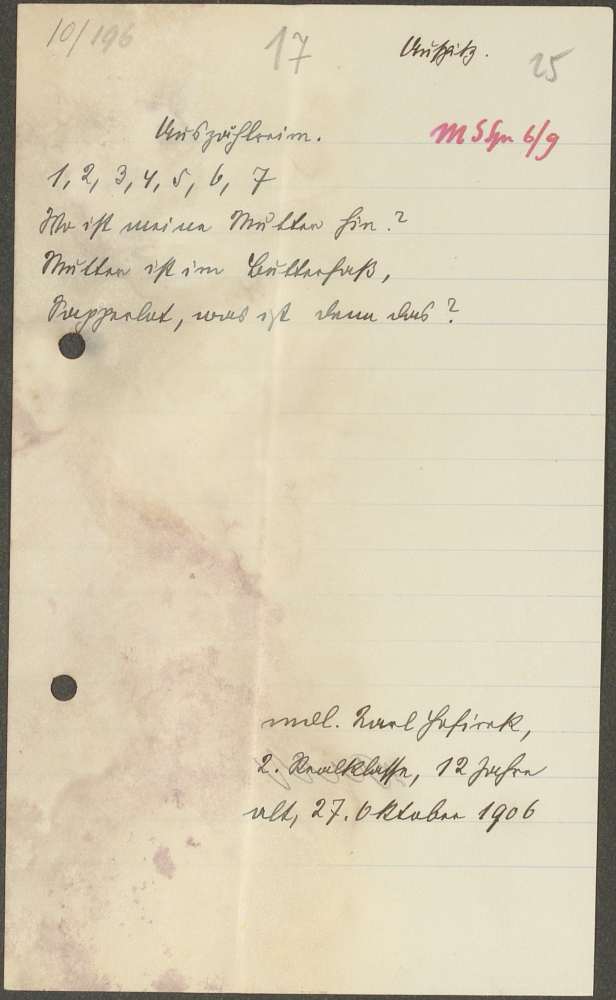 10/196
17
Auspitz.
25
Auszählreim.
1, 2, 3, 4, 5, 6, 7
Wo ist meine Mutter hin?
Mutter ist im Butterfaß,
Sapperlot, was ist denn das?
mdl. Karl
2. Realklasse, 12 Jahre
alt, 27. Oktober 1906